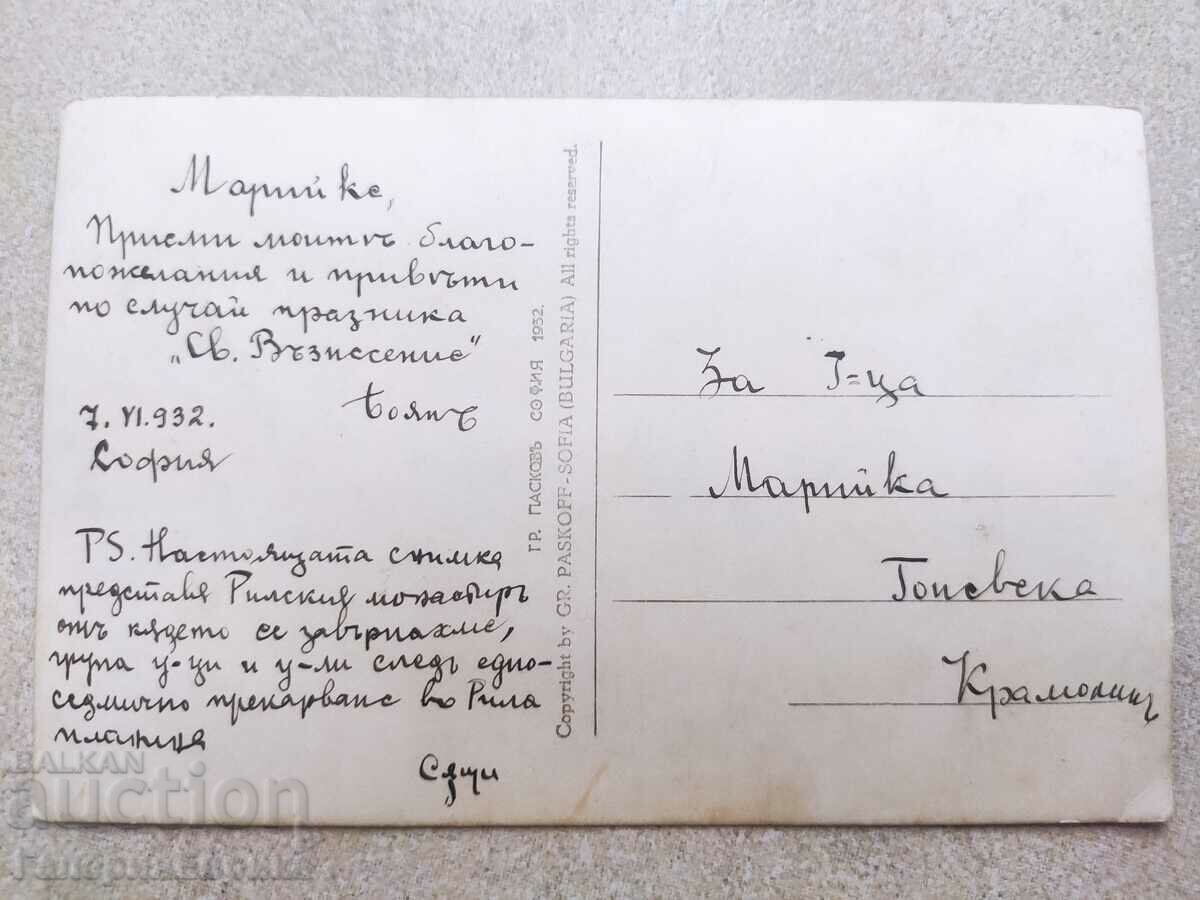 Марийке,
Приеми моитѣ благо-
пожелания и привѣти
по случай празника
„Св. Възнесение"
Боянъ
7.VI.932.
София
PS. Настоящата снимка
представя Рилския монастиръ
отъ кѫдето се завърнахме,
група у-ци и у-ли следъ едно-
седмично прекарване въ Рила
планина
Сѫщи
ГР. ПАСКОВЪ СОФИЯ 1932.
Copyright by GR. PASKOFF-SOFIA (BULGARIA) All rights reserved.
За Г-ца
Марийка
Гоневска
Крамолинъ
BALKAN
auction